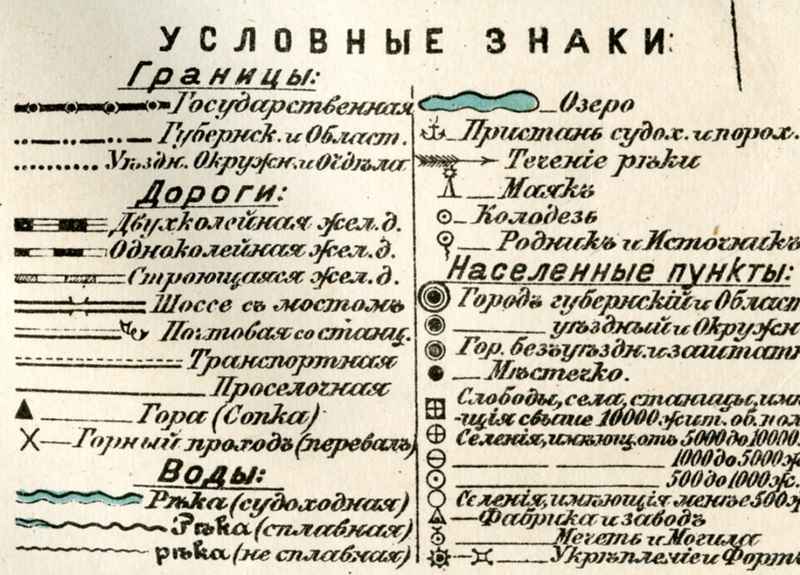 УСЛОВНЫЕ ЗНАКИ:
Границы:
Государственная
Губернск. и Област.
Уѣздн. Окружн. и Отдѣла
Дороги:
Двухколейная жел. д.
Одноколейная жел. д.
Строющаяся жел. д.
Шоссе съ мостомъ
Почтовая со станц.
Транспортная
Проселочная
Гора (Сопка)
Горный проходъ (перевалъ)
Воды:
Рѣка (судоходная)
Рѣка (сплавная)
рѣка (не сплавная)
Озеро
Пристань судох. и порох.
Теченіе рѣки
Маякъ
Колодезь
Родникъ и Источникъ
Населенные пункты:
Городъ губернскій и Област
уѣздный и Окружн
Гор. безъуѣздн. и заштатн
Мѣстечко.
Слободы, села, станицы, имѣ-
-щія свыше 10000 жит. об. пол
Селенія, имѣющ. отъ 5000 до 10000.
1000 до 5000 ж
500 до 1000 ж.
Селенія, имѣющія менѣе 500 ж
Фабрика и заводъ
Мечеть и Могила
Укрѣпленіе и Фортъ